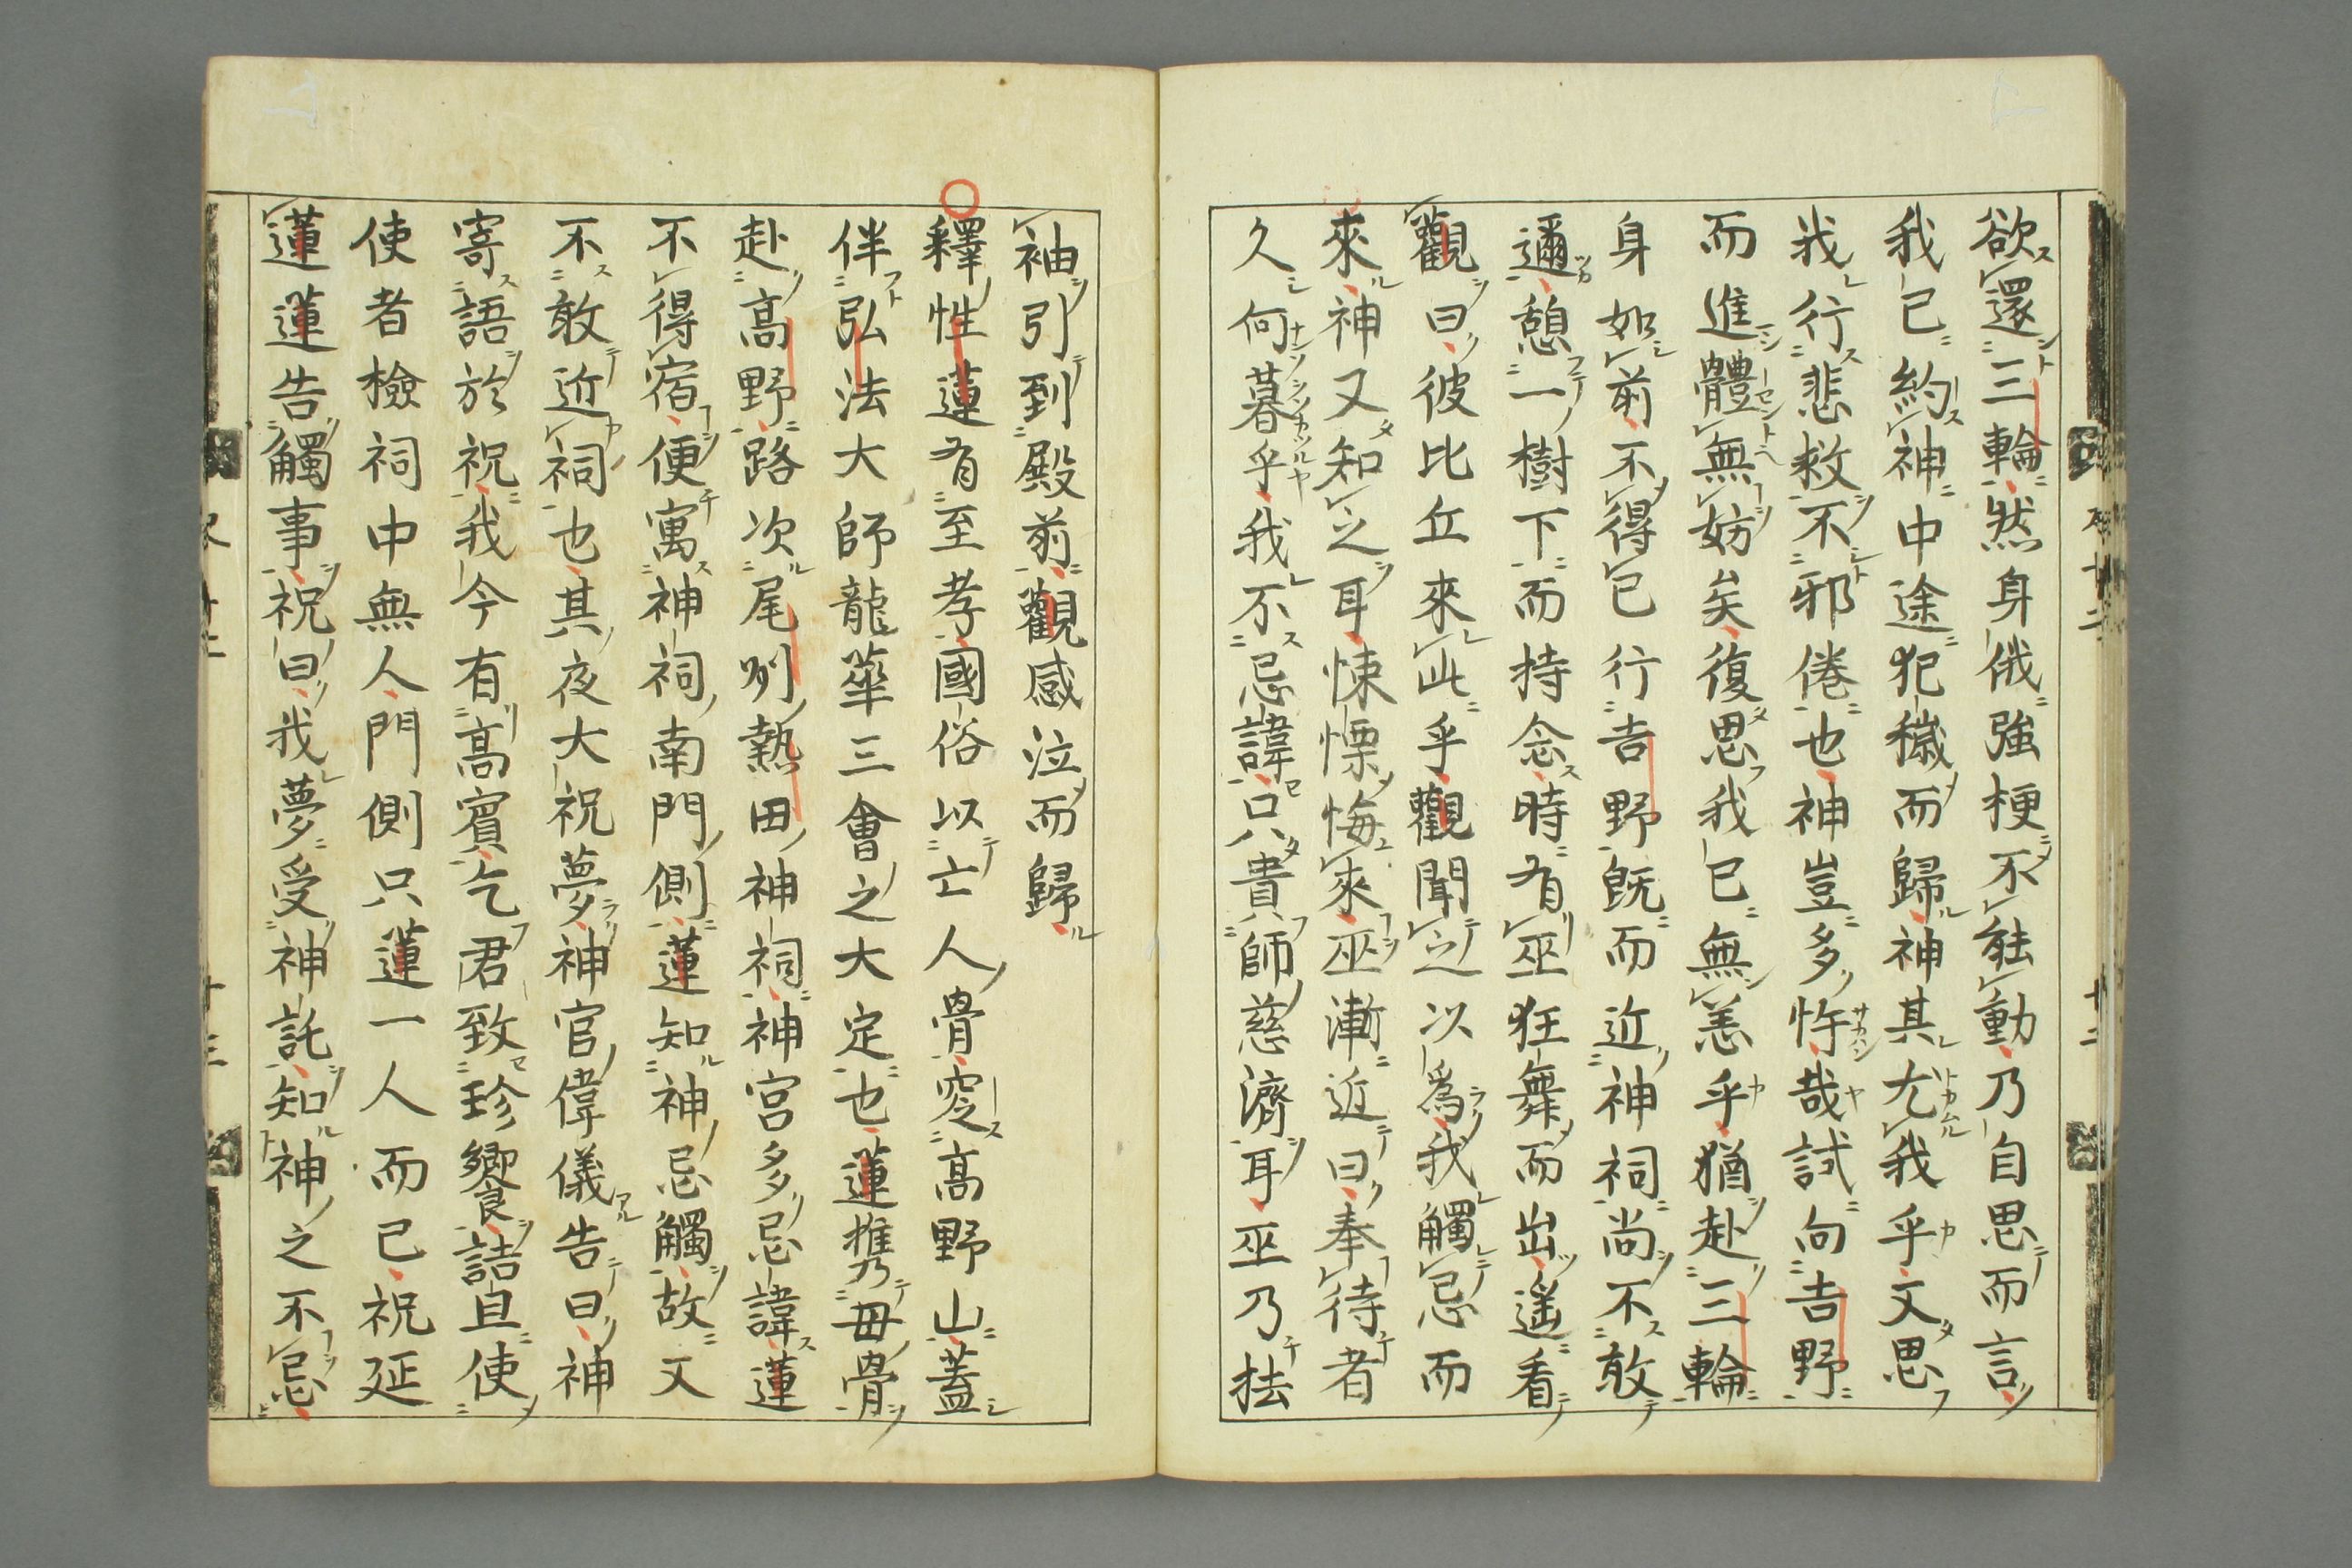 欲還三輪然身俄強梗不能動乃自思而言
我已約神中途犯穢而歸神其尤我乎又思
我行悲救不邪倦也神豈多忤哉試向吉野
而進體無妨矣復思我已無恙乎猶赴三輪
身如前不得已行吉野既而近神祠尚不敢
邇憩一樹下而持念時有巫狂舞而出遙看
觀曰彼比丘來此乎觀聞之以爲我觸忌而
來神又知之耳悚慄悔來巫漸近曰奉待者
久何暮乎我不忌諱只貴師慈濟耳巫乃抾
袖引到殿前觀感泣而歸
釋性蓮有至孝國俗以亡人骨窆高野山蓋
伴弘法大師龍華三會之大定也蓮携母骨
赴高野路次尾州熱田神祠神宮多忌諱蓮
不得宿便寓神祠南門側蓮知神忌觸故又
不敢近祠也其夜大祝夢神官偉儀告曰神
寄語於祝我今有高賓乞君致珍饗詰旦使
使者檢祠中無人門側只蓮一人而已祝延
蓮蓮告觸事祝曰我夢受神託知神之不忌